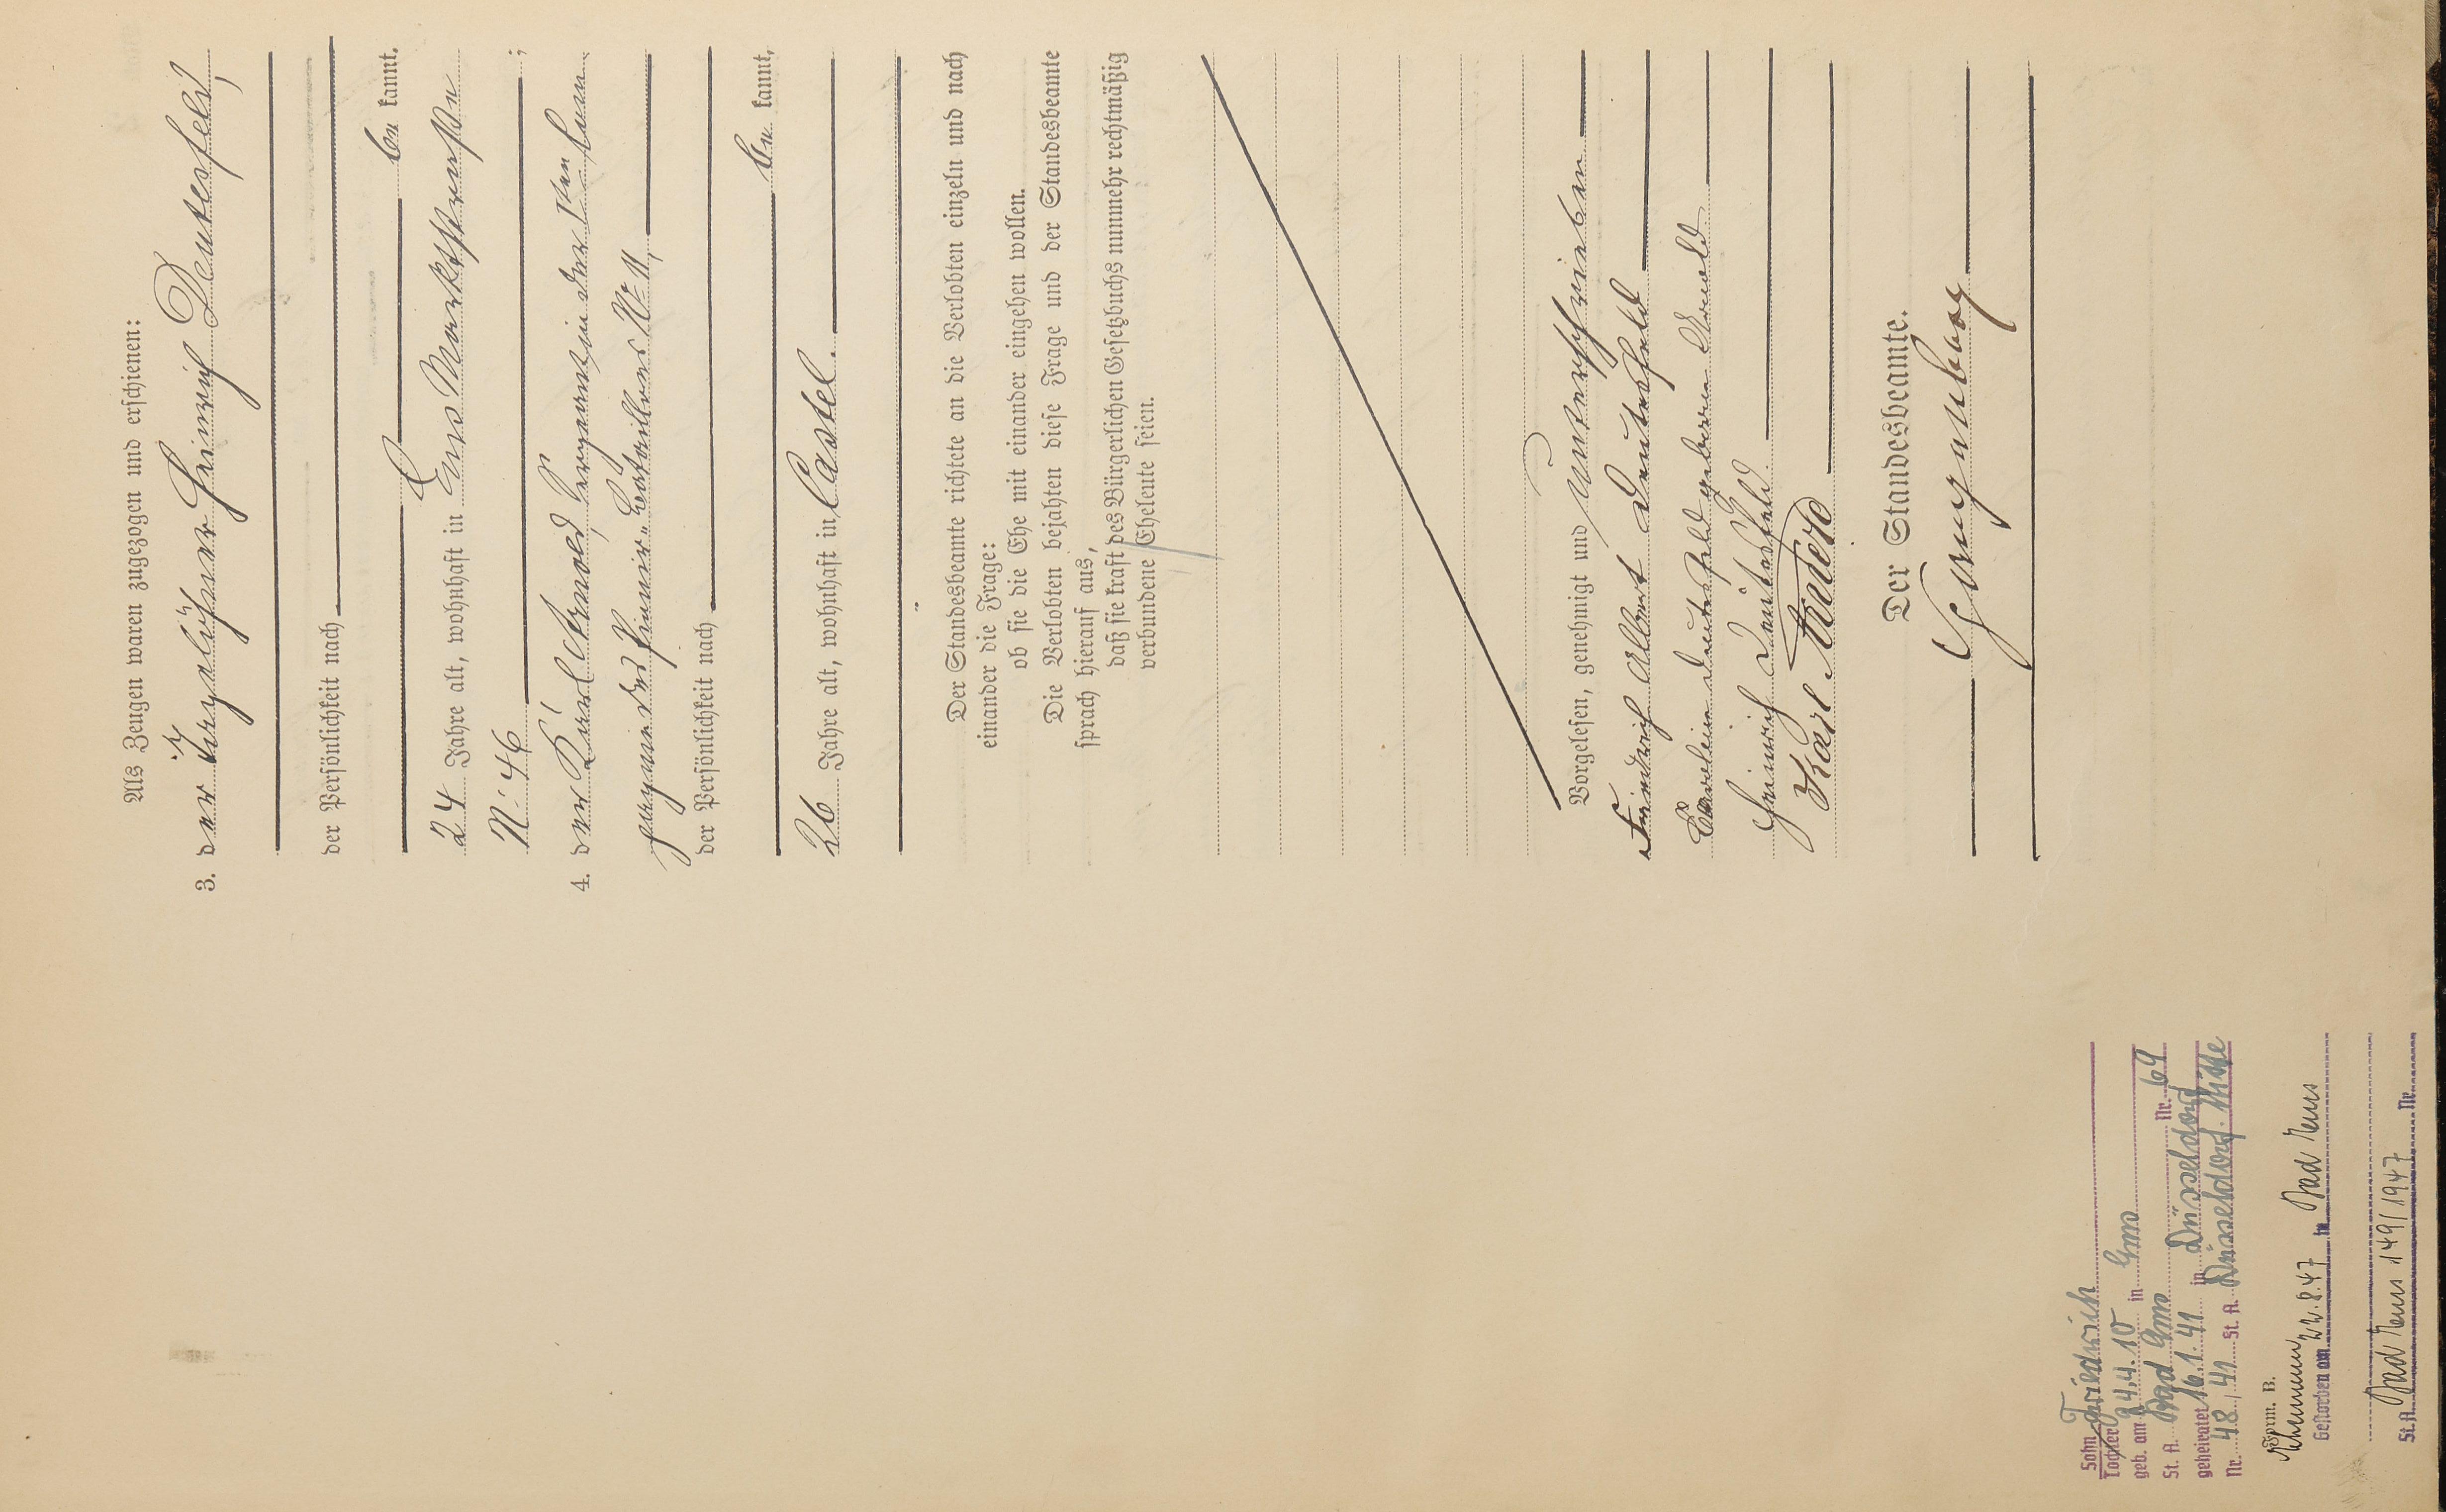 Als Zeugen waren zugezogen und erschienen:
3. der Tagelöhner Heinrich Deutesfeld,
der Persönlichkeit nach
be kannt,
24 Jahre alt, wohnhaft in Ems Marktstraße
N: 46 ;
4. der Karl Arnold, Sergeant in der 1ten Kom-
pagnie des Pionier-Bataillons No 11,
der Persönlichkeit nach be kannt,
26 Jahre alt, wohnhaft in Castel.
Der Standesbeamte richtete an die Verlobten einzeln und nach
einander die Frage:
ob sie die Ehe mit einander eingehen wollen.
Die Verlobten bejahten diese Frage und der Standesbeamte
sprach hierauf aus,
daß sie kraft des Bürgerlichen Gesetzbuchs nunmehr rechtmäßig
verbundene Eheleute seien.
Vorgelesen, genehmigt und unterschrieben
Friedrich Albert Deutesfeld
Karolina Deutesfeld geborene Arnold
Heinrich Deutesfeld.
Karl Arnold
Der Standesbeamte.
Sohn Friedrich
Tochter
geb. am 24.4.10 in Ems
St. A. Bad Ems Nr. 69
geheiratet 16.1.41 in Düsseldorf
Nr. 48/41 St. A. Düsseldorf-Mitte
Form. B.
Ehemann
Gestorben am 22.8.47 in Bad Ems
St.A. Bad Ems 149/1947 Nr.